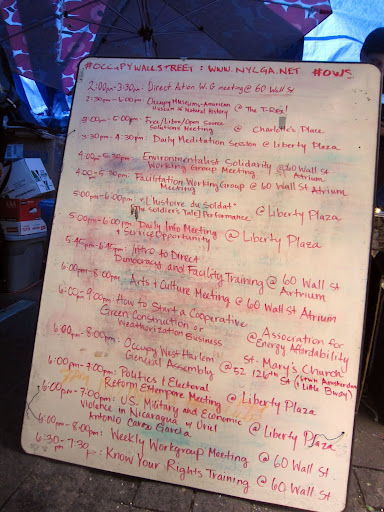 #OCCUPYWALLSTREET : WWW.NYCGA.NET #OWS
2:00pm-3:30pm: Direct Action W.G meeting @ 60 Wall St
2:30pm-6:00pm: Occupy Museums-American @ The T-Rex!
Museum of Natural History
3:00pm-5:00pm: Free/Libre/Open Source @ Charlotte's Place
Solutions Meeting
3:30pm-4:30pm: Daily Meditation Session @ Liberty Plaza
4:00-5:30pm: Environmentalist Solidarity @ 60 Wall St
Working Group Meeting Atrium
4:00-5:30pm: Facilitation Working Group @ 60 Wall St Atrium
Meeting
5:00pm-6:00pm: "L'histoire du Soldat" @ Liberty Plaza
(The Soldier's Tale) Performance
5:00pm-6:00pm: Daily Info Meeting @ Liberty Plaza
+ Service Opportunity
5:45pm- : Intro to Direct
Democracy and Facility Training @ 60 Wall St
Artrium
6:00pm-8:00pm: Arts + Culture Meeting @ 60 Wall St Atrium
6:00pm-9:00pm: How to Start a Cooperative @ Association for
Green Construction or Energy Affordability
Weatherization Business
6:00pm-8:00pm: Occupy West Harlem St. Mary's Church
General Assembly @ 52 126th St (btwn Amsterdam
(Little Bway)
6:00pm-7:00pm: Politics & Electoral @ Liberty Plaza
Reform Extempore Meeting
6:00pm-7:00pm: U.S. Military and Economic @ Liberty Plaza
Violence in Nicaragua w/ Uriel
Antonio Carazo Garcia
6:00-8:00pm: Weekly Workgroup Meeting @ 60 Wall St
6:30-7:30pm: Know Your Rights Training @ 60 Wall St